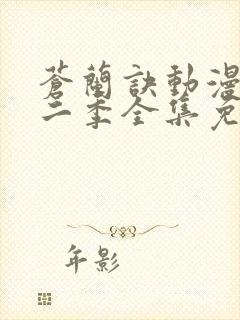 蒼蘭訣動漫
二季全集免
年影